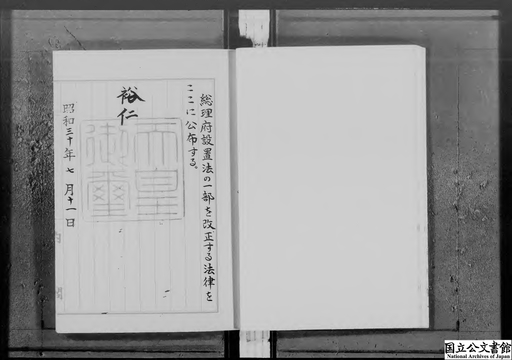 総理府設置法の一部を改正する法律を
ここに公布する。
裕仁
天皇
御璽
昭和三十年七月十一日
国立公文書館
National Archives of Japan